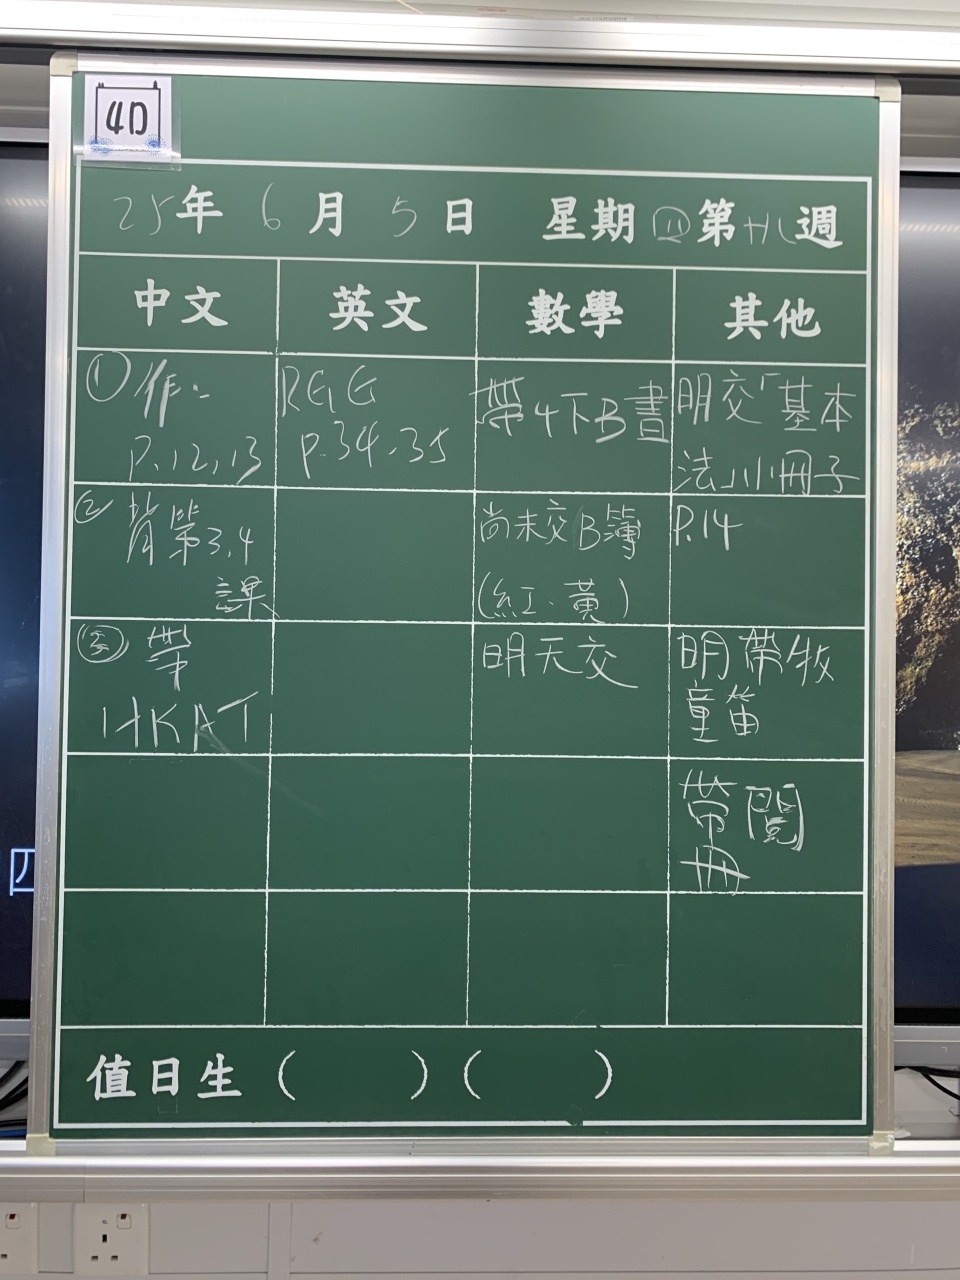 4D
25年 6月 5日 星期四第十八週
中文 英文 數學 其他
① 作:
P.12,13
REG
P.34,35
帶4下B書
明交「基本
法」小冊子
② 背第3,4
課
尚未交B簿
(紅.黃)
P.14
③ 帶
HKAT
明天交
明帶牧
童笛
帶閱
冊
值日生 ( ) ( )
四